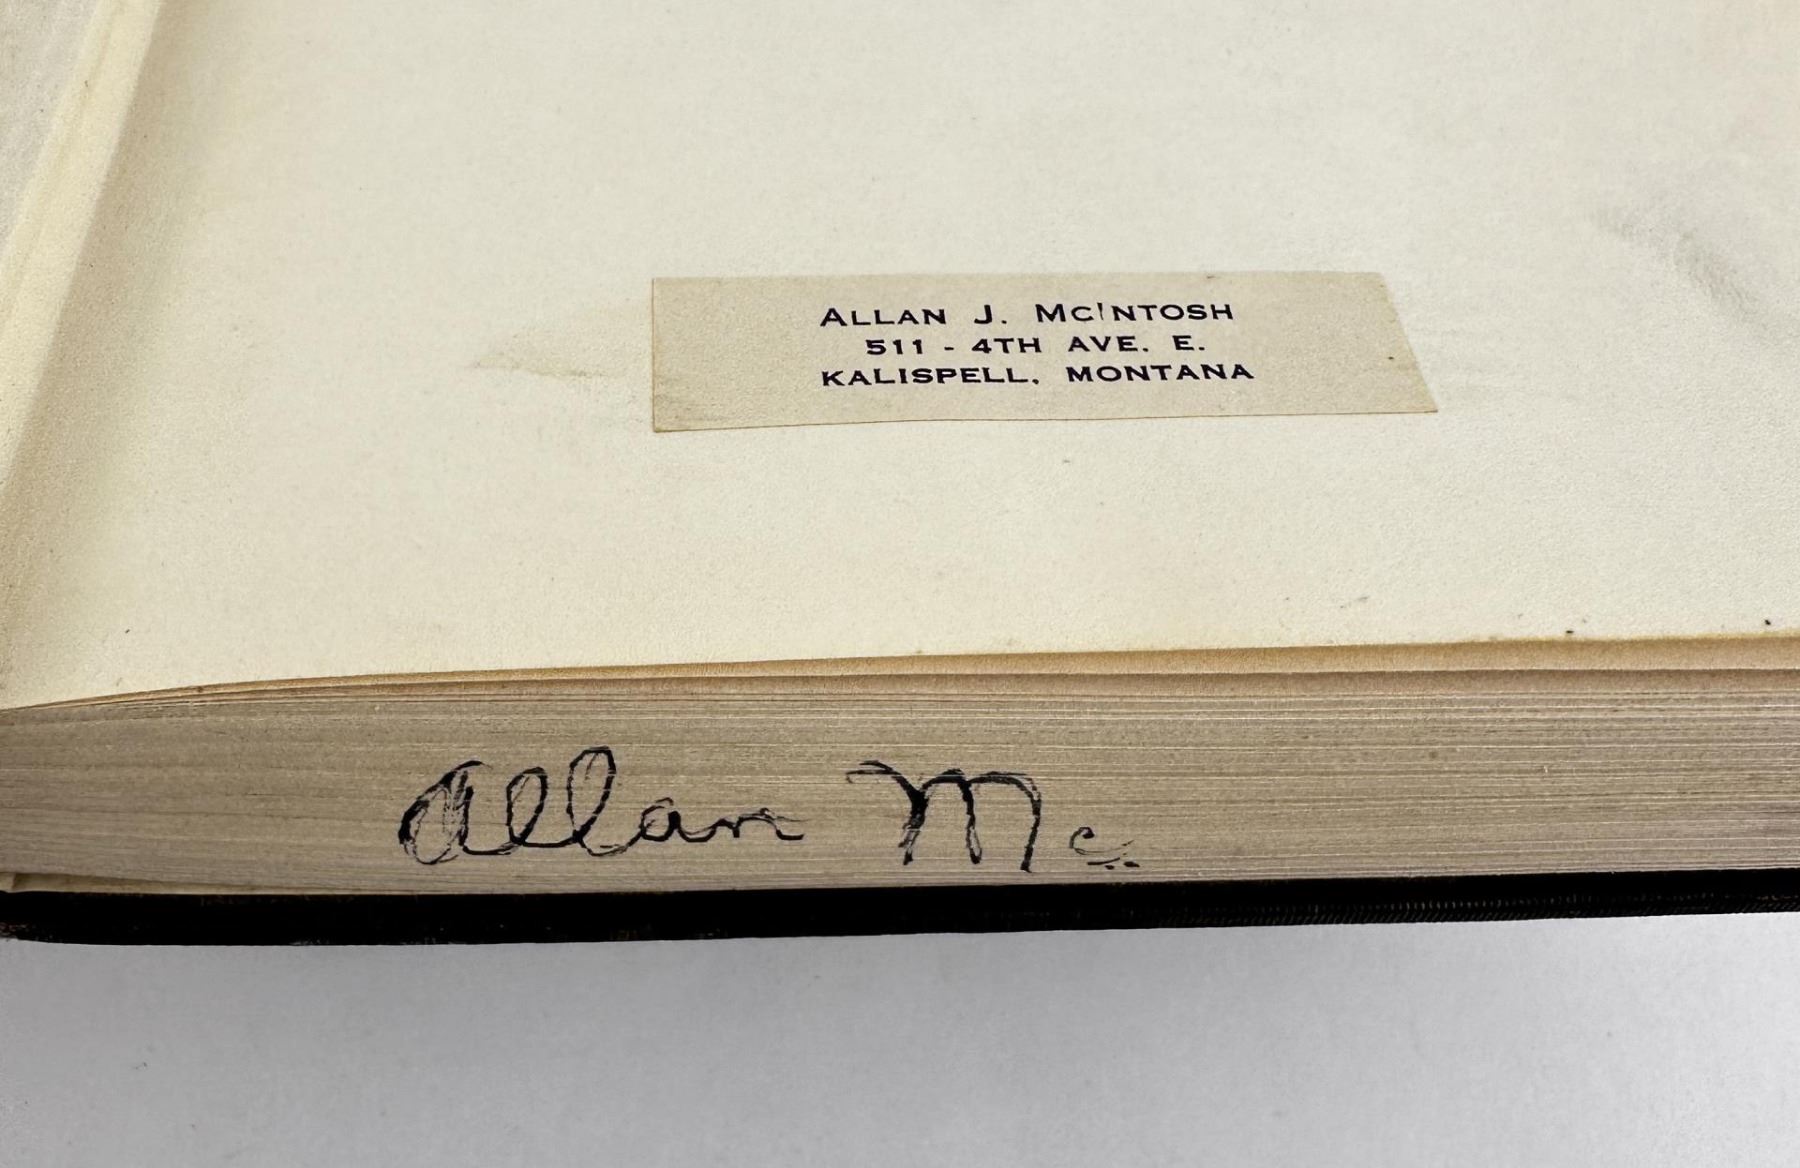 ALLAN J. MCINTOSH
511 - 4TH AVE. E.
KALISPELL, MONTANA
Allan Mc.